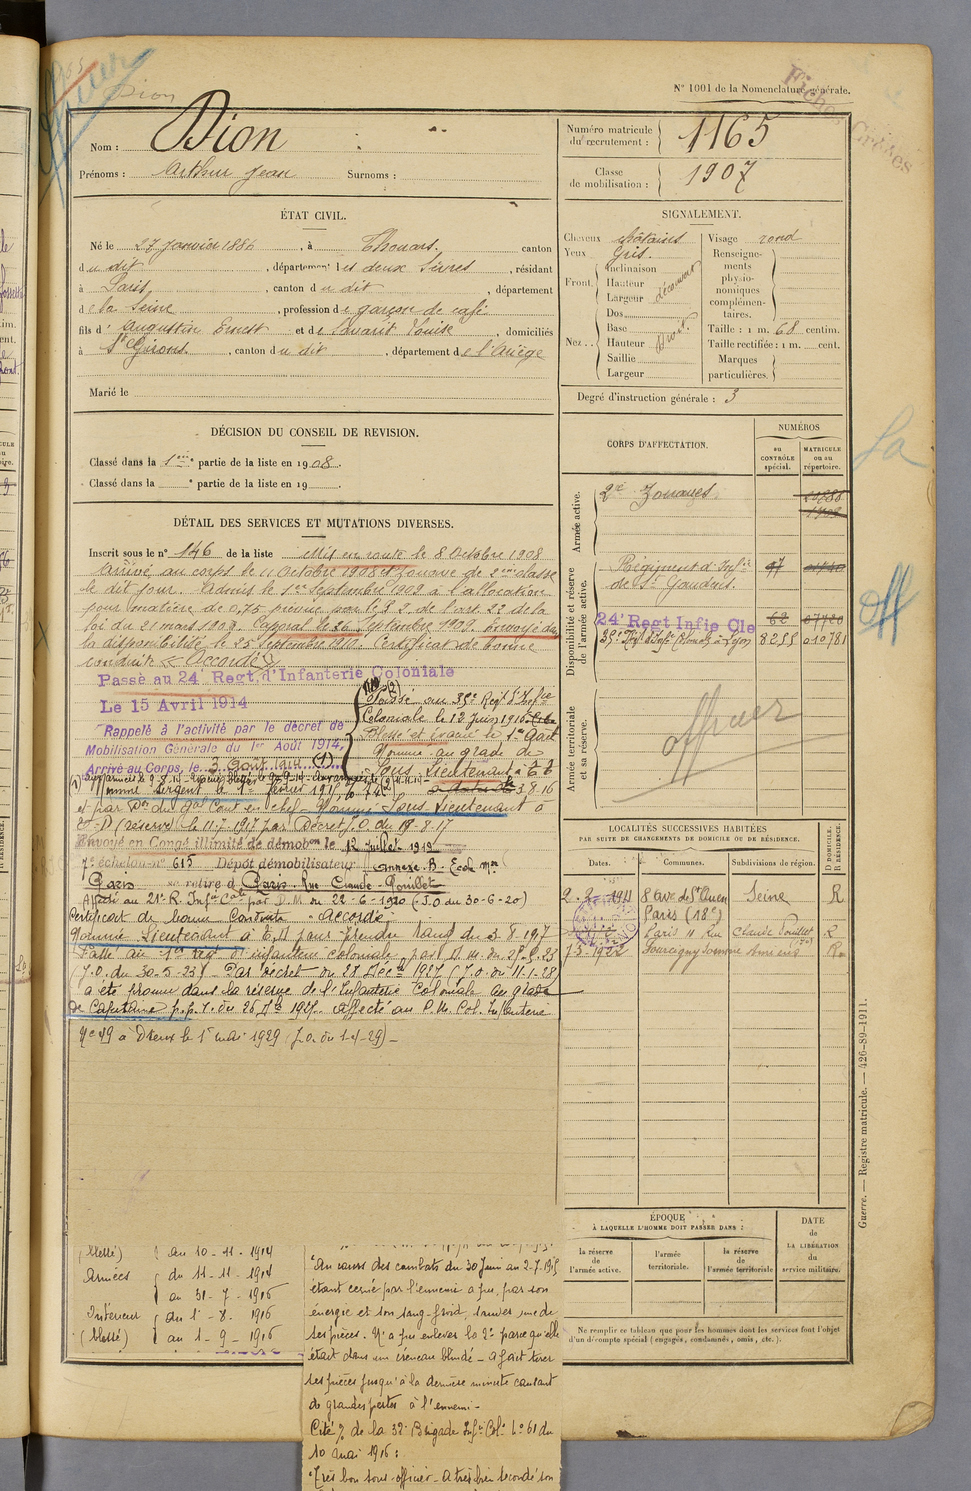 N° 1001 de la Nomenclature générale.
Fiches Croisées
Dion
Nom : Dion
Prénoms : Arthur Jean Surnoms :
Numéro matricule du recrutement : 1165
Classe de mobilisation : 1907
ÉTAT CIVIL.
Né le 27 janvier 1886, à Thouars, canton
du dit, département des deux Sèvres, résidant
à Paris, canton du dit, département
de la Seine, profession de garçon de café
fils d'Augustin Ernest et de Savarit Louise, domiciliés
à St Girons, canton du dit, département de l'Ariège
Marié le
SIGNALEMENT.
Cheveux châtains
Yeux gris.
Front. Inclinaison
Hauteur
Largeur découvert
Nez. Dos
Base
Hauteur droit
Saillie
Largeur
Visage rond
Renseignements physionomiques complémentaires.
Taille : 1 m. 68 centim.
Taille rectifiée : 1 m. cent.
Marques particulières.
Degré d'instruction générale : 3
DÉCISION DU CONSEIL DE REVISION.
Classé dans la 1ère partie de la liste en 1908.
Classé dans la e partie de la liste en 19
DÉTAIL DES SERVICES ET MUTATIONS DIVERSES.
Inscrit sous le n° 146 de la liste Mis en route le 8 Octobre 1908
Arrivé au corps le 11 Octobre 1908 et Zouave de 2ème classe
le dit jour. Admis le 1er Septembre 1909 à l'allocation
pour matière de 0,75 prévue par le § 2 de l'art. 22 de la
loi du 21 mars 1905. Caporal le 26 Septembre 1909. Envoyé dans
la disponibilité le 25 Septembre 1910. Certificat de bonne
conduite « Accordé ».
Passé au 24 Regt. d'Infanterie Coloniale
Le 15 Avril 1914
Rappelé à l'activité par le décret de
Mobilisation Générale du 1er Août 1914,
Arrivé au Corps, le 3 Août 1914 (1)
Passé au 35e Regt d'Infie
Coloniale le 12 Juin 1916.
Blessé et évacué le 1er Août
Nommé au grade de
Sous Lieutenant à T.T.
3.8.16
nommé Sergent le 1er février 1915
et par Don du Gal Cont en chef - Nommé Sous Lieutenant à
T.D (réserve) le 11-7-1917 par Décret J.O. du 19-8-17
Envoyé en Congé illimité de démobon le 12 juillet 1919
7e échelon n° 615 Dépôt démobilisateur annexe B. Ecole Mre
Paris se retire à Paris. Rue Claude Pouillet
Affecté au 21e R. Infie Cole par D.M. du 22-6-1920 (J.O du 30-6-20)
Certificat de bonne Conduite "Accordé"
Nommé Lieutenant à T.D pour prendre rang du 3-8-1917
Passé au 1er regt d'infanterie coloniale par D.M. du 25-5-23
(J.O. du 30-5-23) - Par décret du 28 Décre 1927 (J.O. du 11-1-28)
a été promu dans la réserve de l'Infanterie Coloniale au grade
de Capitaine p.p.r. du 26 Xbre 1927. affecté au C.M. Col. Infanterie
N° 49 à Dreux le 1er mai 1929 (J.O. du 1-4-29) -
CORPS D'AFFECTATION.
NUMÉROS
au CONTRÔLE spécial.
MATRICULE ou au répertoire.
Armée active.
2e Zouaves.
Disponibilité et réserve de l'armée active.
Régiment d'Infie 97
de St Gaudens.
24e Regt Infie Cle 62
35e Regt d'Infie Colonale à Lyon 8255 010781
Armée territoriale et sa réserve.
officier
LOCALITÉS SUCCESSIVES HABITÉES
PAR SUITE DE CHANGEMENTS DE DOMICILE OU DE RÉSIDENCE.
Dates. Communes. Subdivisions de région. D DOMICILE. R RÉSIDENCE.
2-2-1911 8 ave de St Ouen Seine R
Paris (18e)
Paris 11 Rue Claude Pouillet R
7-5-1922
ÉPOQUE
À LAQUELLE L'HOMME DOIT PASSER DANS :
la réserve de l'armée active.
l'armée territoriale.
la réserve de l'armée territoriale
DATE de LA LIBÉRATION du service militaire.
Ne remplir ce tableau que pour les hommes dont les services font l'objet
d'un décompte spécial (engagés, condamnés, omis, etc.).
Guerre. — Registre matricule. — 426-89-1911.
(blessé) au 10-11-1914
Armées du 11-11-1914
au 31-7-1916
Intérieur du 1er-8-1916
(blessé) au 1-9-1916
"Au cours des combats du 30 Juin au 2-7-1915
étant cerné par l'ennemi a pu, par son
énergie et son sang-froid, sauver une de
ses pièces. N'a pu enlever la 2e parce qu'elle
était dans un créneau blindé - a fait tirer
ses pièces jusqu'à la dernière minute causant
de grandes pertes à l'ennemi -
Cité % de la 32e Brigade Infie Cole N° 61 du
10 mai 1916 :
"Très bon sous-officier - A très bien secondé son